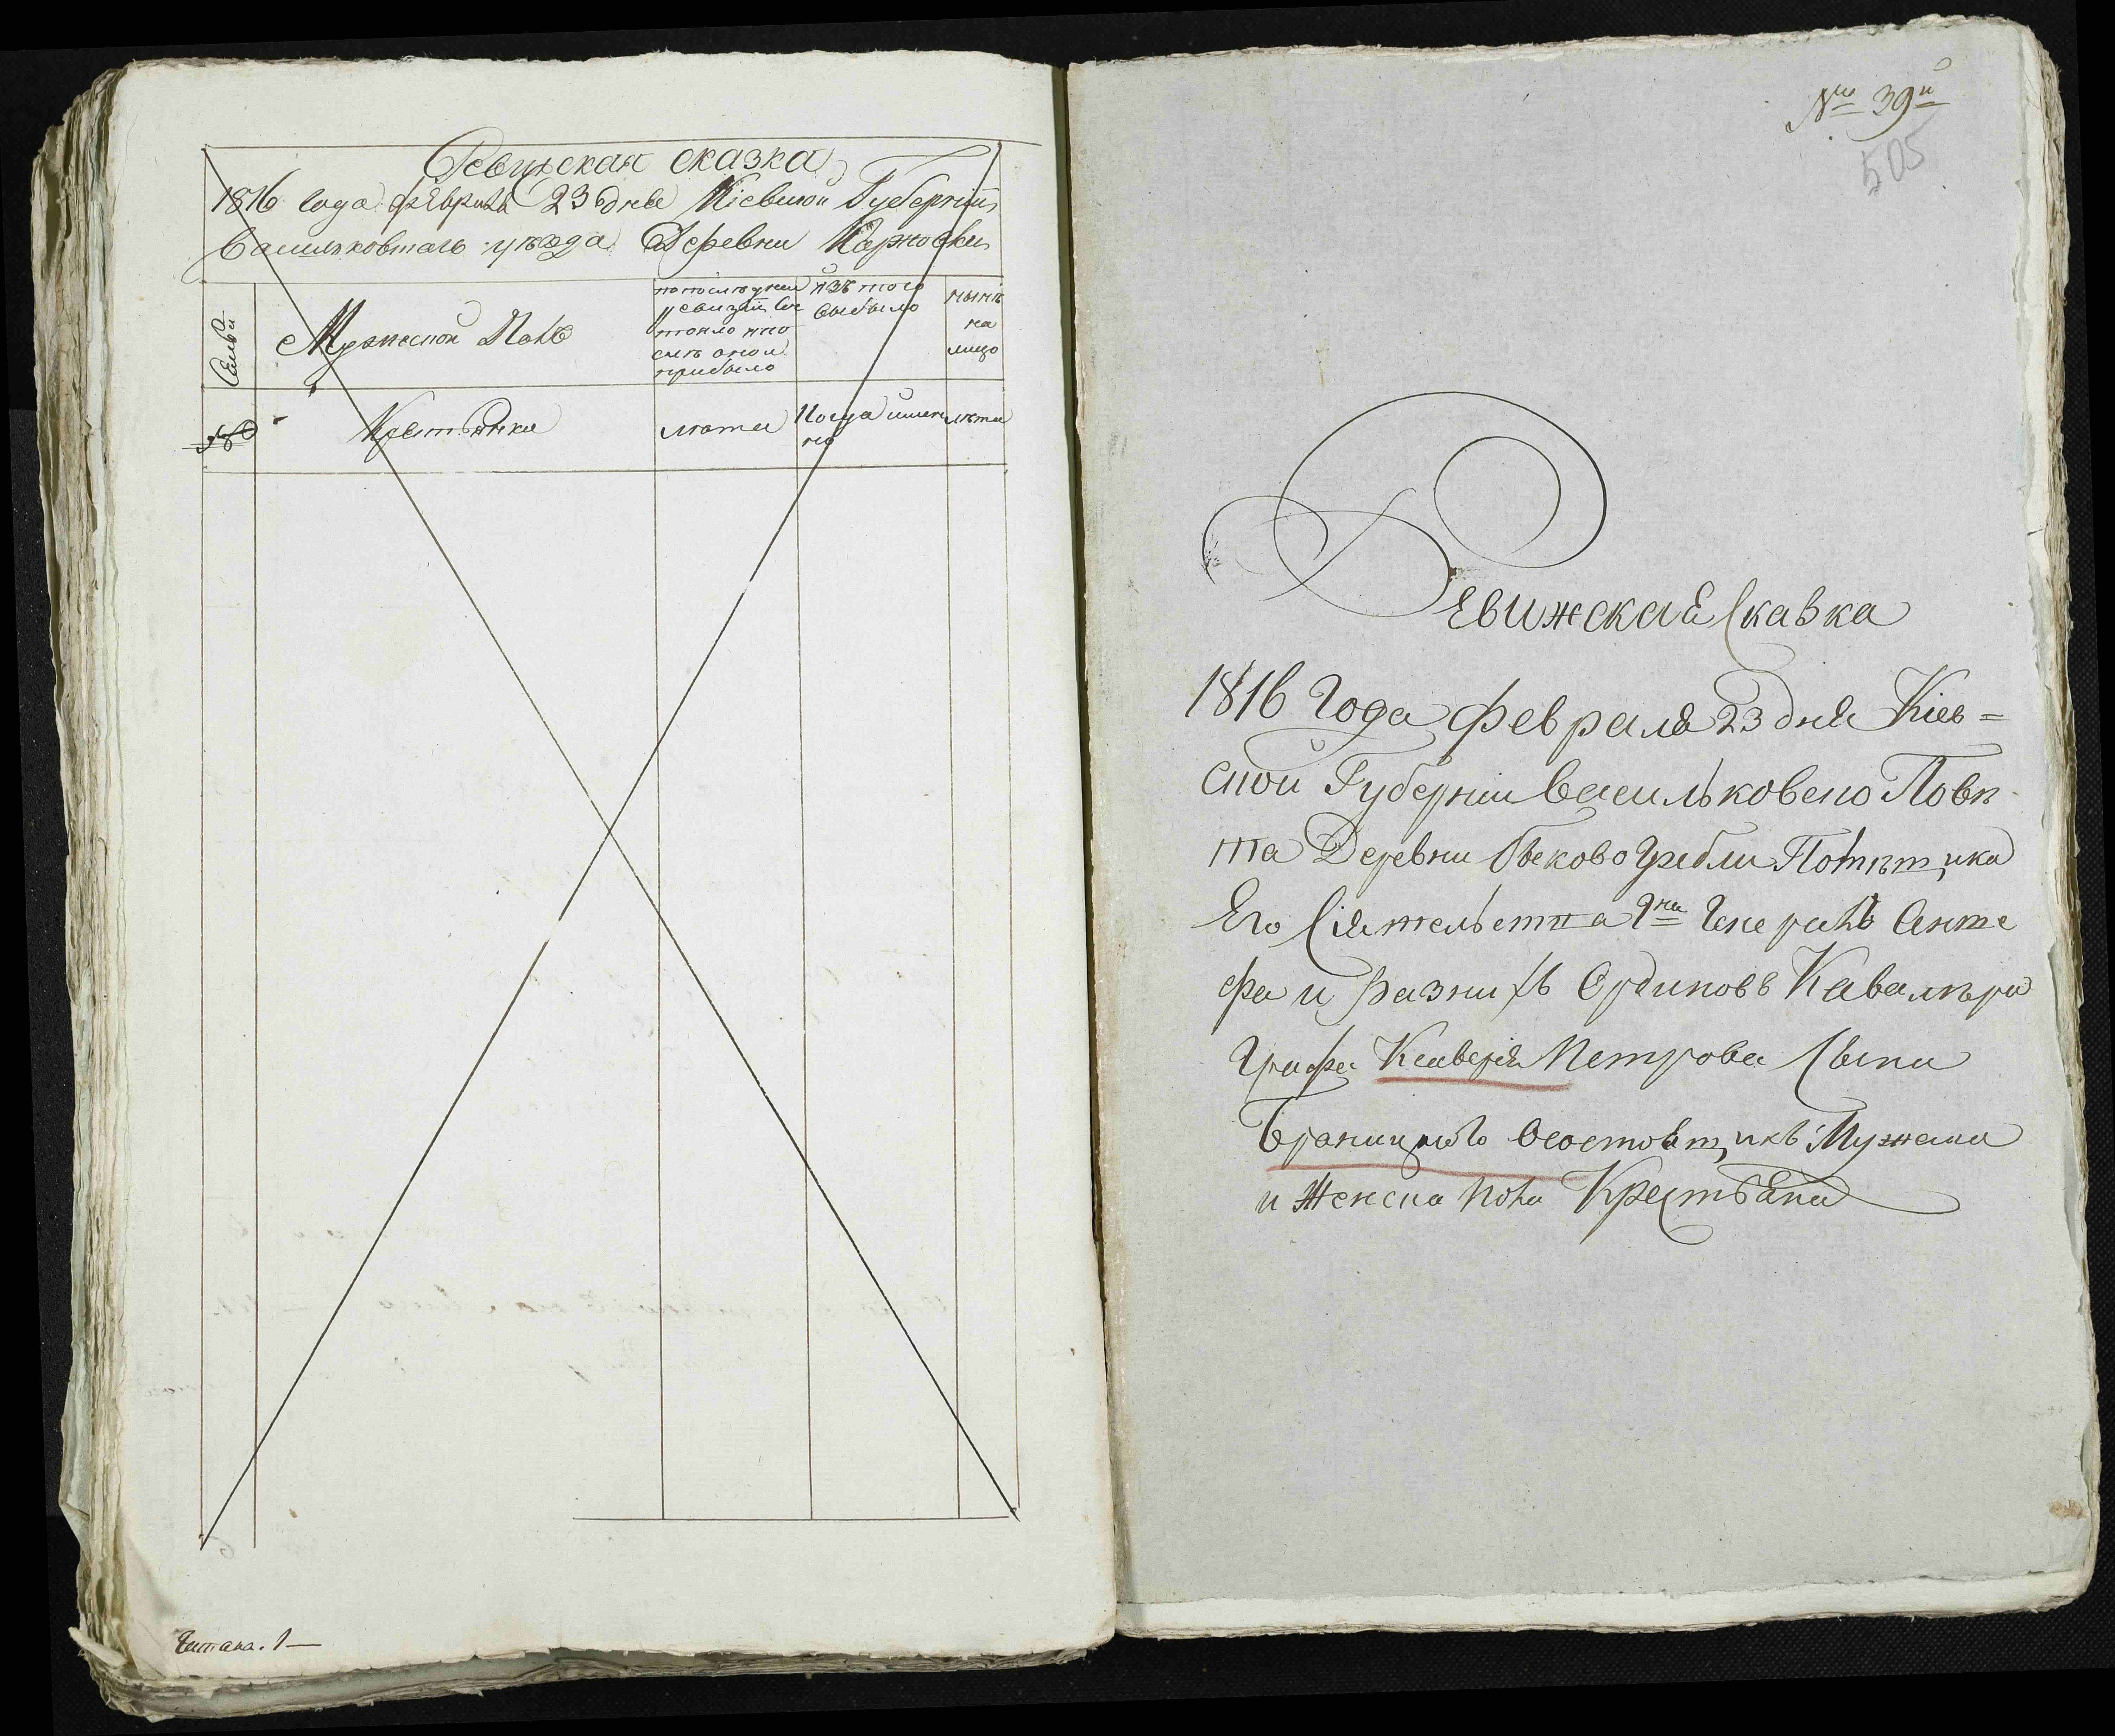 Ревижская сказка
1816 года февраля 23 дня Кіевской Губерніи
Васильковскаго уезда Деревни
Семьи
Мужеской Полъ
по последней
ревизіи со
стояло и по
слѣ оной
прибыло
изъ того
выбыло
нынѣ
на
лицо
Крестьяне
лѣта
Когда имен
но
лѣта
1
№ 39й
505
Ревижская Сказка
1816 Года Февраля 23 дня Кіев=
ской Губерніи Васильковско Повѣ
та Деревни Гребли
Его Сіятельства Гна Генералъ Анше
фа и разнихъ Ординовъ Кавалѣра
Графа Ксаверія Петрова Сына
Браницкого Осостоящихъ Мужеска
и Женска пола Крестьяна